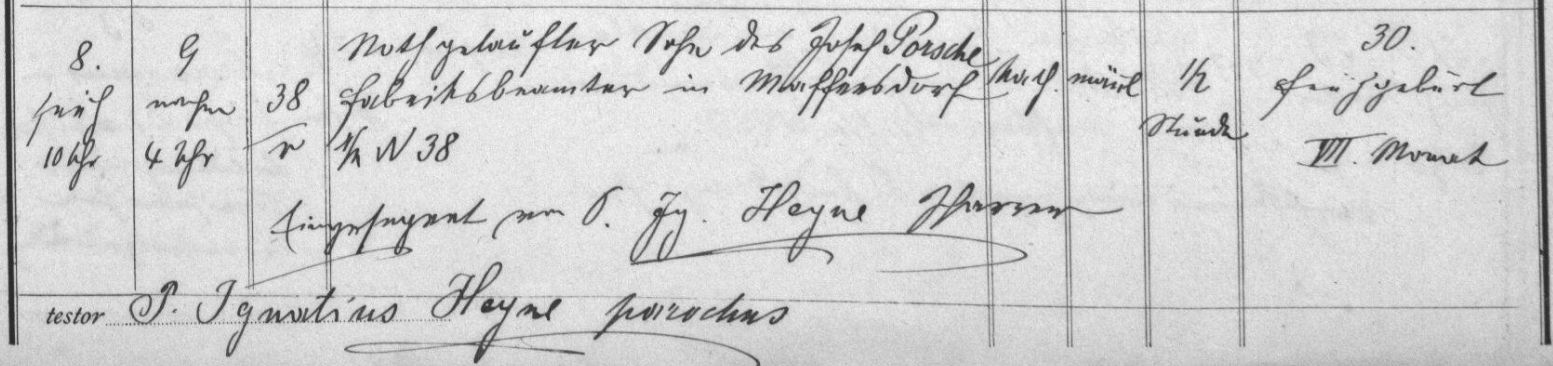 8. 9 Nothgetaufter Sohn des Josef Porsche 30.
früh nachm 38 Fabriksbeamter in Maffersdorf kath. männl 1/2 Frühgeburt
10 Uhr 4 Uhr r N 38 Stunde VII. Monat
Eingesegnet von P. Ig. Heyne Pfarrer
testor P. Ignatius Heyne parochus